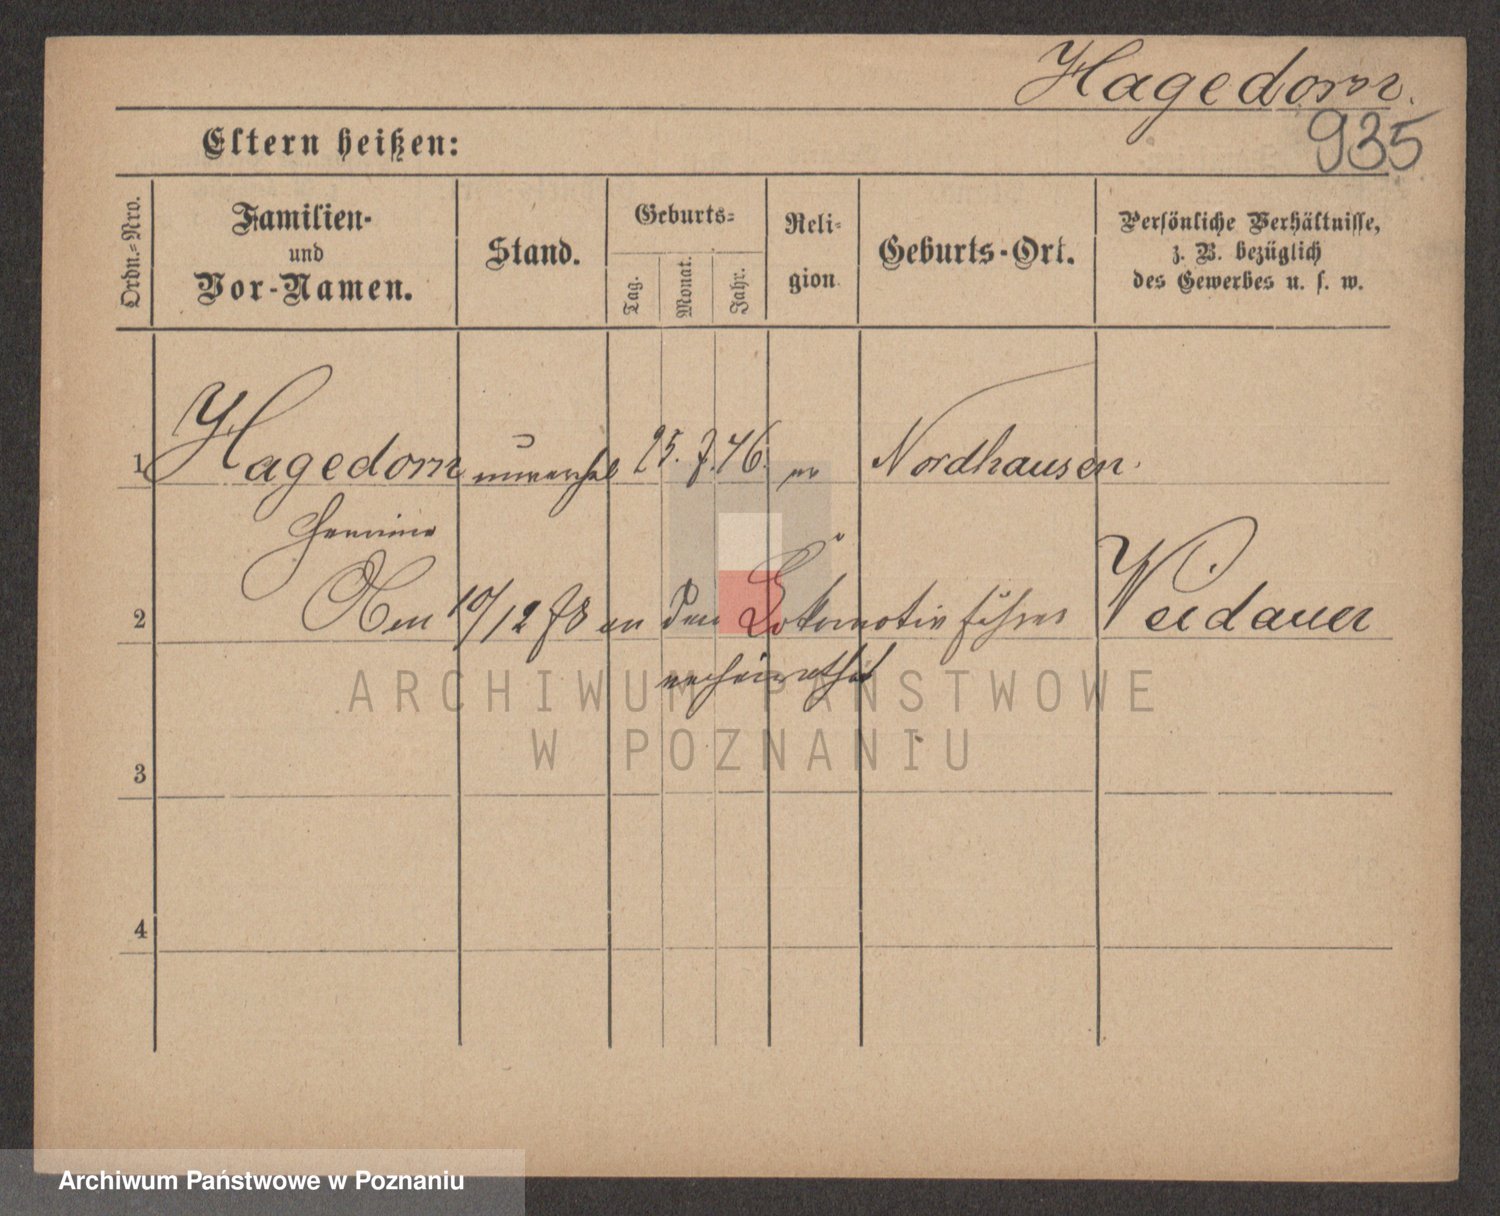 Hagedorn.
935
Eltern heißen:
Ordn.-Nro.
Familien-
und
Vor-Namen.
Stand.
Geburts-
Tag.
Monat.
Jahr.
Reli-
gion
Geburts-Ort.
Persönliche Verhältnisse,
z. B. bezüglich
des Gewerbes u. s. w.
1 Hagedorn unverehel 25. 7. 46. ev Nordhausen.
Hermine
2 10/12 78 an den Lokomotivführer Weidauer
verheirathet
3
4
ARCHIWUM PAŃSTWOWE
W POZNANIU
Archiwum Państwowe w Poznaniu